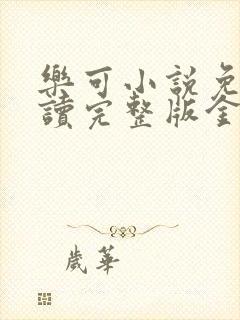 樂可小說免
讀完整版全
歲華